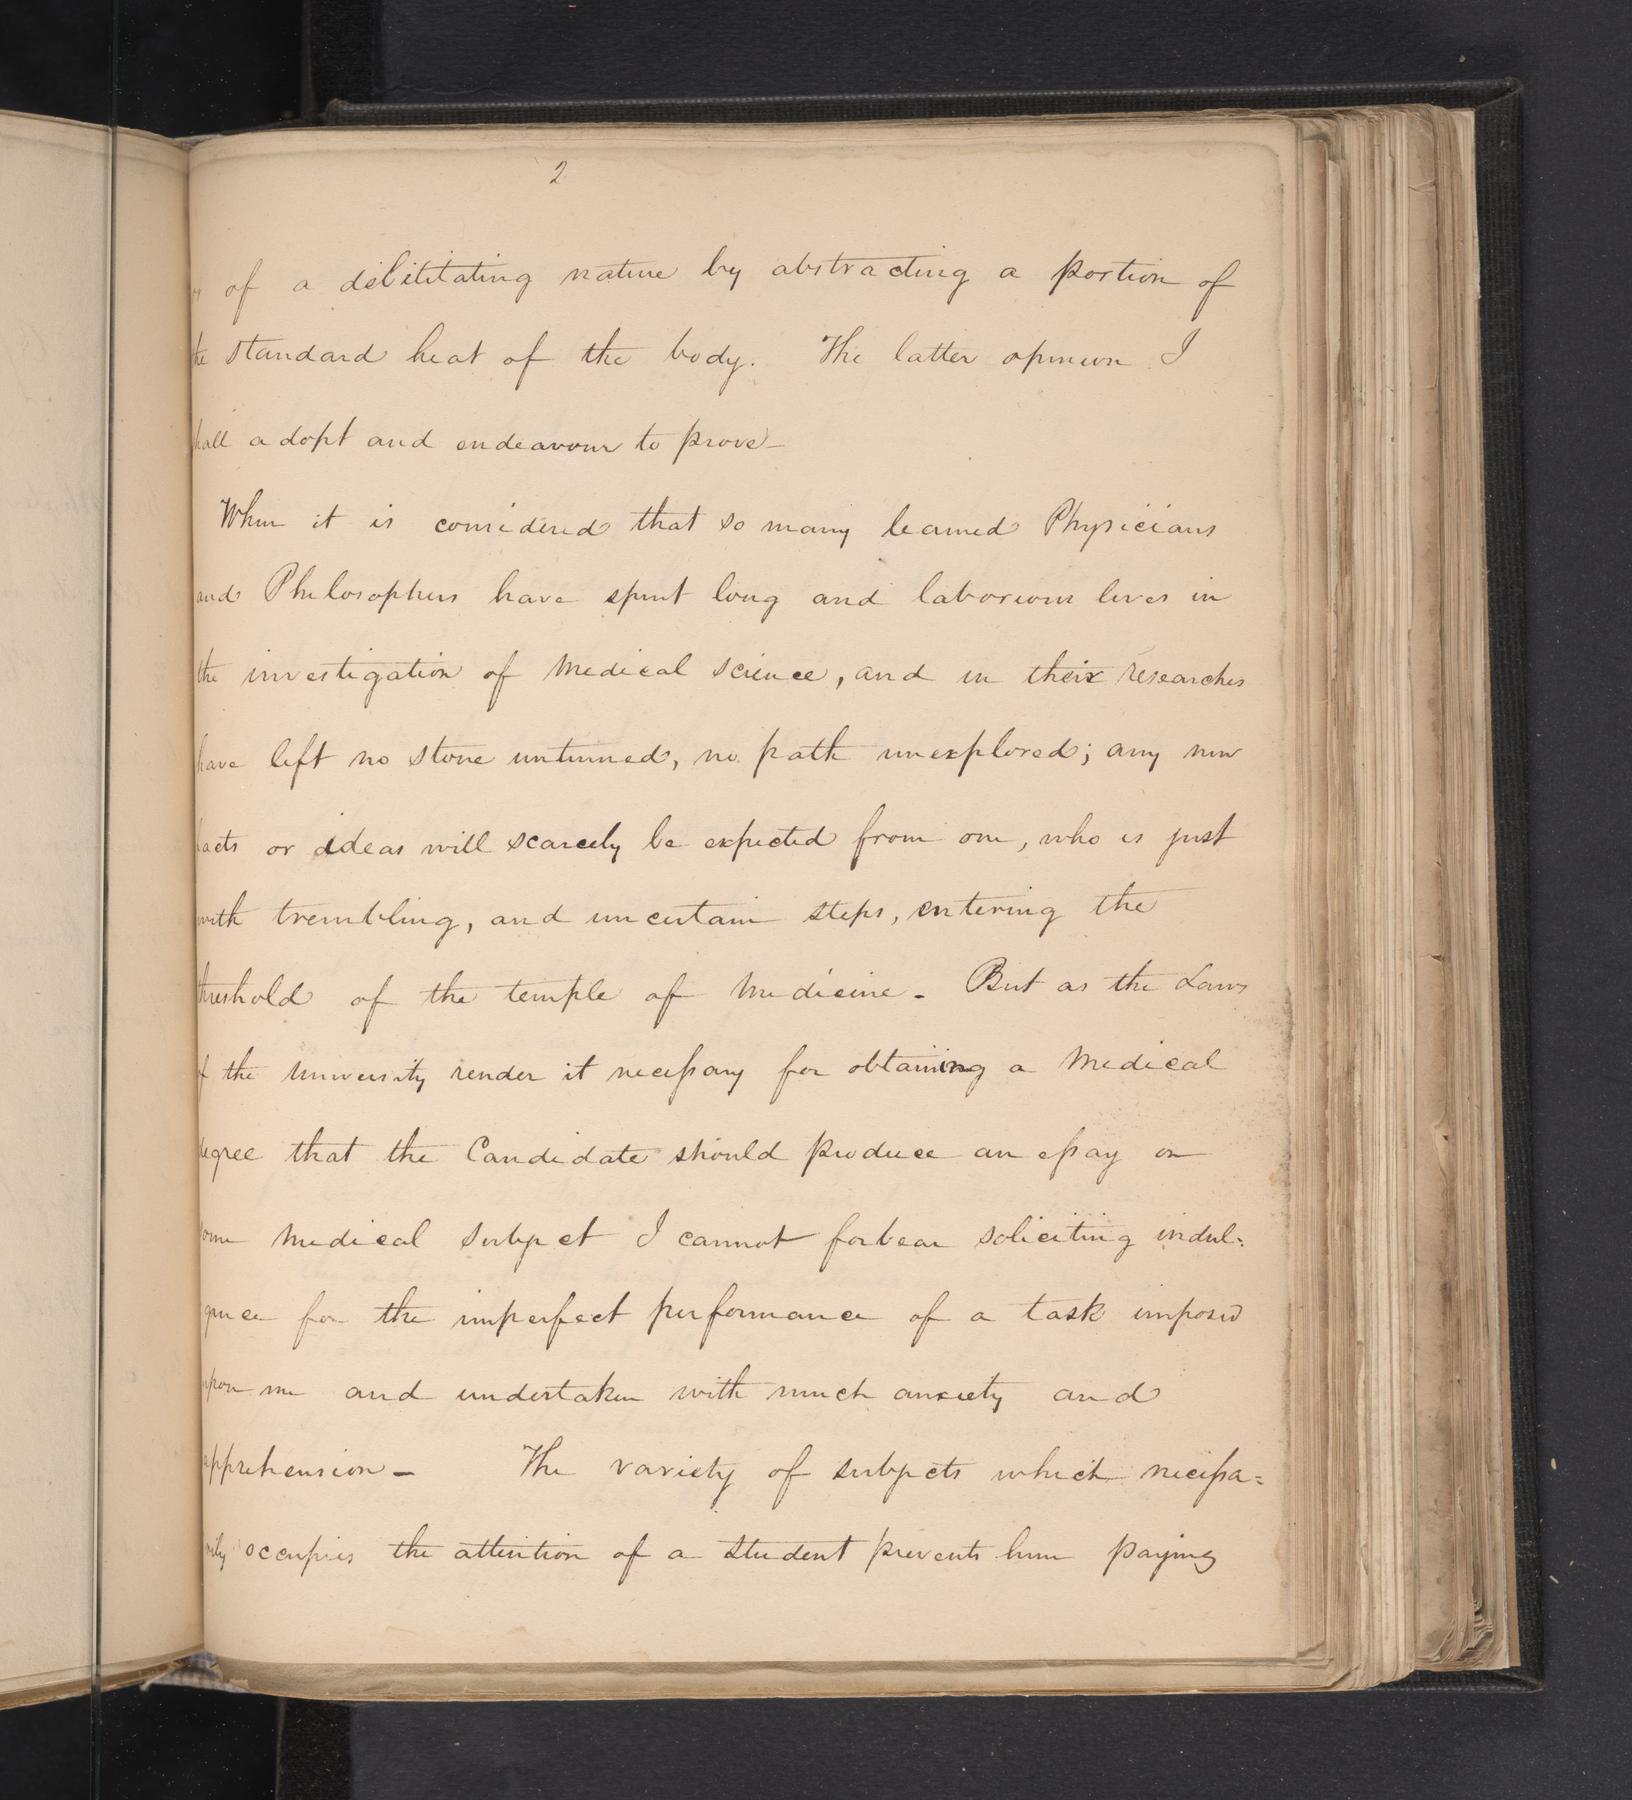 2
of a debilitating nature by abstracting a portion of
the standard heat of the body. The latter opinion I
shall adopt and endeavour to prove—
When it is considered that so many learned Physicians
and Philosophers have spent long and laborious lives in
the investigation of Medical science, and in their researches
have left no stone unturned, no path unexplored; any new
facts or ideas will scarcely be expected from one, who is just
with trembling, and uncertain steps, entering the
threshold of the temple of Medicine. But as the Laws
of the University render it necessary for obtaining a Medical
degree that the Candidate should produce an essay on
some Medical subject I cannot forbear soliciting indul=
gence for the imperfect performance of a task imposed
upon me and undertaken with much anxiety and
apprehension— The variety of subjects which necessa=
rily occupies the attention of a student prevents him paying